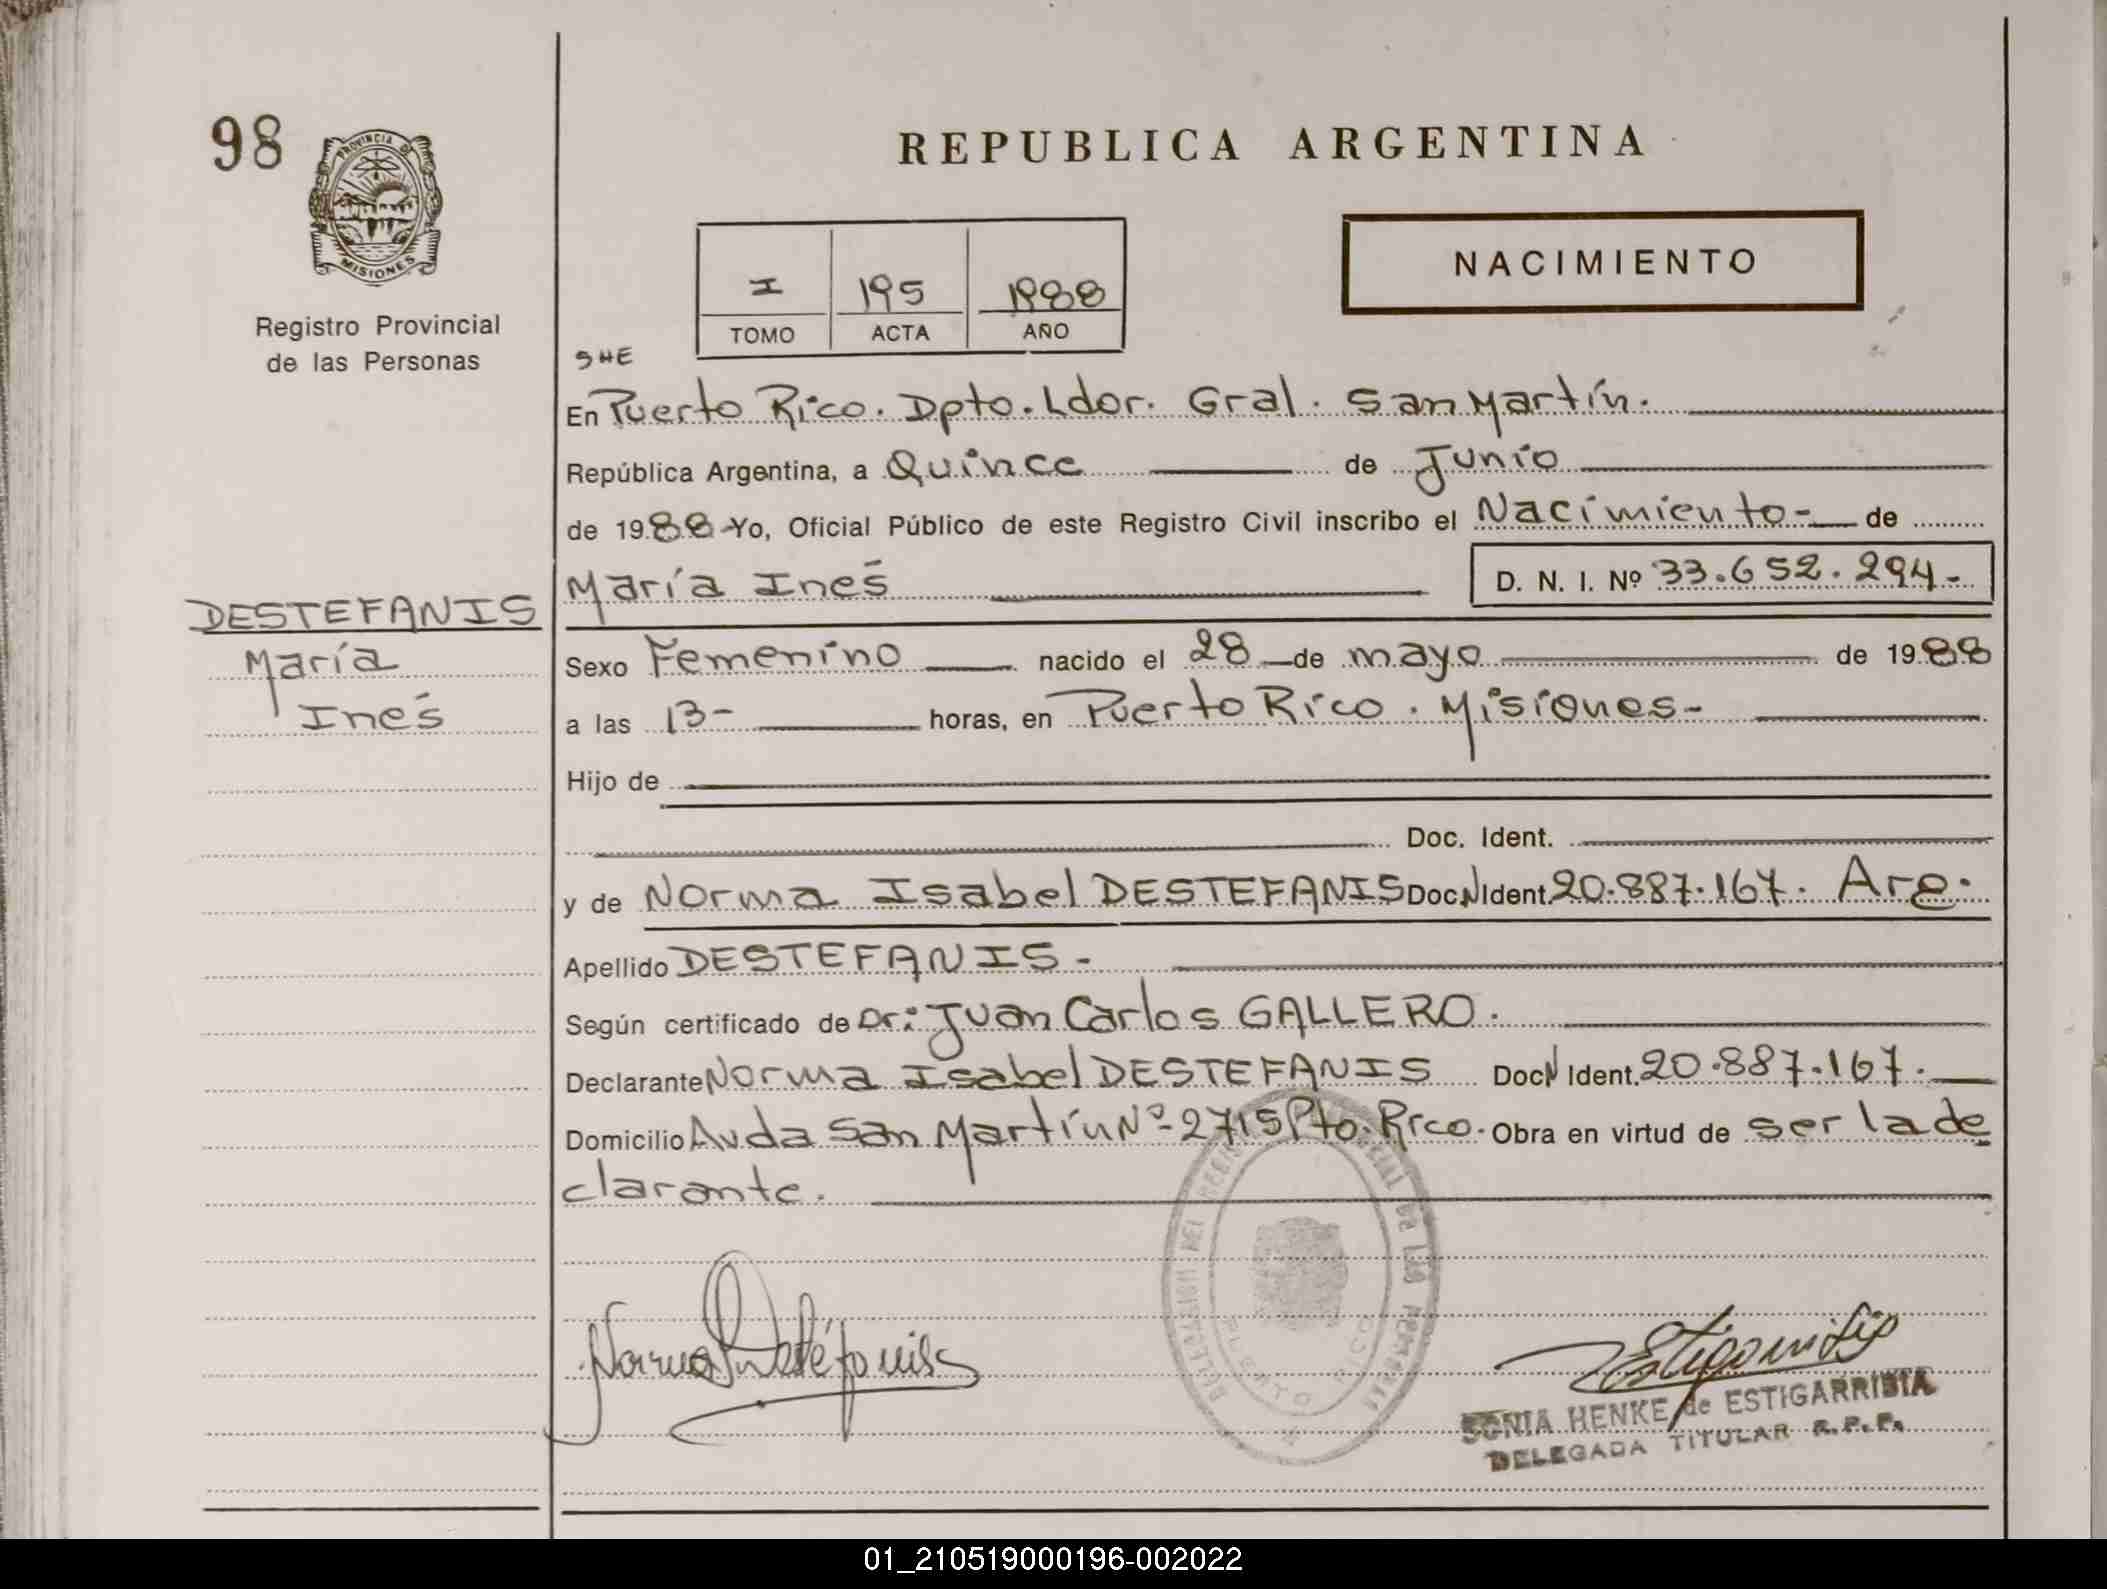 98
PROVINCIA DE
MISIONES
Registro Provincial
de las Personas
REPUBLICA ARGENTINA
NACIMIENTO
I 195 1988
TOMO ACTA AÑO
SHE
En Puerto Rico. Dpto. Ldor. Gral. San Martín.
República Argentina, a Quince de Junio
de 1988 Yo, Oficial Público de este Registro Civil inscribo el Nacimiento- de
María Inés D. N. I. Nº 33.652.294-
DESTEFANIS
María
Inés
Sexo Femenino nacido el 28 de mayo de 1988
a las 13- horas, en Puerto Rico. Misiones-
Hijo de
Doc. Ident.
y de Norma Isabel DESTEFANIS Doc.N Ident. 20.887.167. Arg.
Apellido DESTEFANIS-
Según certificado de Dr: Juan Carlos GALLERO.
Declarante Norma Isabel DESTEFANIS Doc.N Ident. 20.887.167.
Domicilio Avda San Martín Nº- 2715 Pto. Rico. Obra en virtud de ser la de
clarante.
DELEGACION DEL REGISTRO PROVINCIAL DE LAS PERSONAS
PUERTO RICO
Norma I Destéfanis
Estigarribia
SONIA HENKE de ESTIGARRIBIA
DELEGADA TITULAR R.P.P.
01_210519000196-002022